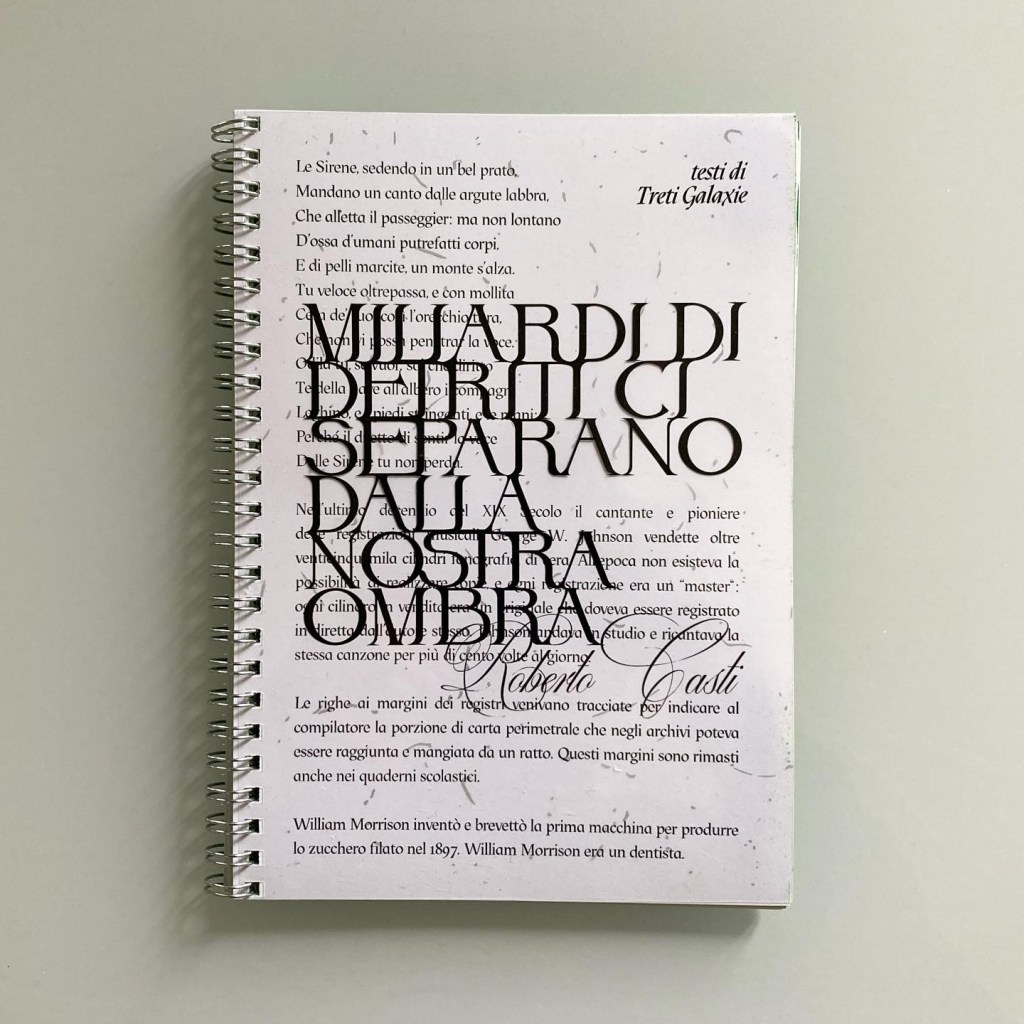 Le Sirene, sedendo in un bel prato,
Mandano un canto dalle argute labbra,
Che alletta il passeggier: ma non lontano
D'ossa d'umani putrefatti corpi,
E di pelli marcite, un monte s'alza.
Tu veloce oltrepassa, e con mollita
Cera de' tuoi così l'orecchio tura,
Che non vi possa penetrar la voce.
Odila tu, se vuoi, sol che diritto
Te della nave all'albero i compagni
Leghino, e i piedi stringanti e le mani;
Perché il diletto di sentir la voce
Delle Sirene tu non perda.
testi di
Treti Galaxie
MILIARDI DI
DETRITI CI
SEPARANO
DALLA
NOSTRA
OMBRA
Roberto Casti
Nell'ultimo decennio del XIX Secolo il cantante e pioniere
delle registrazioni musicali George W. Johnson vendette oltre
venticinquemila cilindri fonografici di cera. All'epoca non esisteva la
possibilità di realizzare copie, e ogni registrazione era un "master":
ogni cilindro in vendita era un originale che doveva essere registrato
in diretta dall'autore stesso. Johnson andava in studio e ricantava la
stessa canzone per più di cento volte al giorno.
Le righe ai margini dei registri venivano tracciate per indicare al
compilatore la porzione di carta perimetrale che negli archivi poteva
essere raggiunta e mangiata da un ratto. Questi margini sono rimasti
anche nei quaderni scolastici.
William Morrison inventò e brevettò la prima macchina per produrre
lo zucchero filato nel 1897. William Morrison era un dentista.